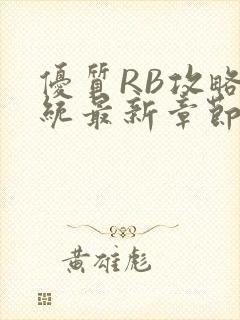 優質RB攻略
統最新章節
黃雄彪